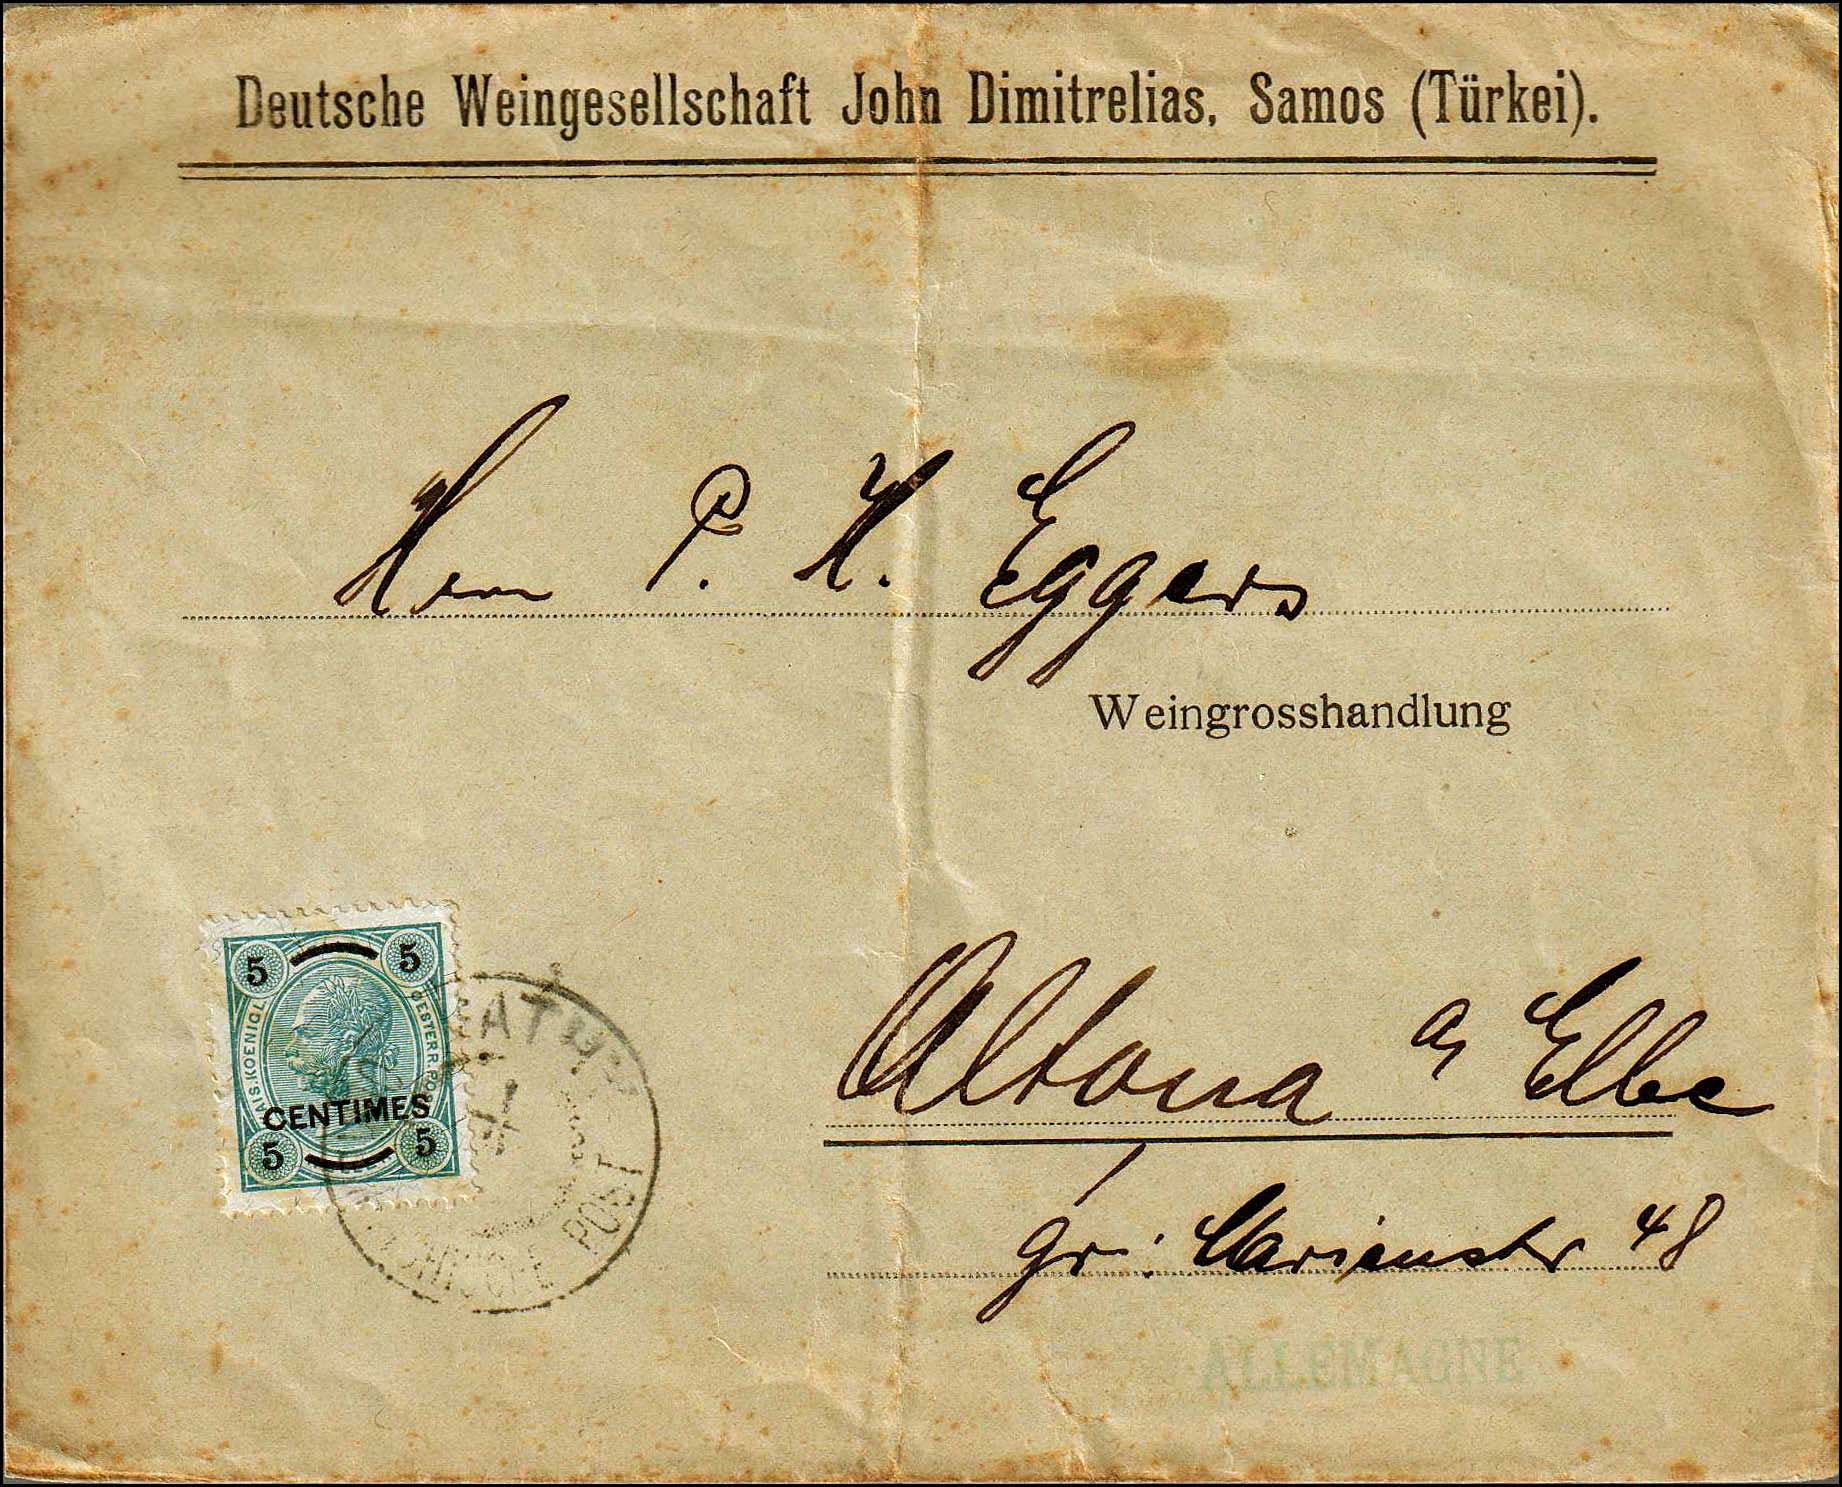 Deutsche Weingesellschaft John Dimitrelias, Samos (Türkei).
Herrn P. H. Eggers
Weingrosshandlung
5 5
KAIS.KOENIGL. OESTERR.POST
CENTIMES
5 5
VATHY
POST
Altona a Elbe
gr: Marienstr 48
ALLEMAGNE